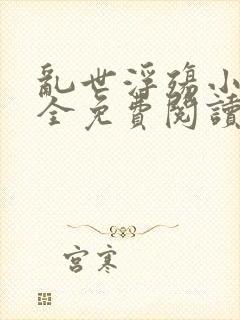 亂世浮殤小
全免費閱讀
宮寒